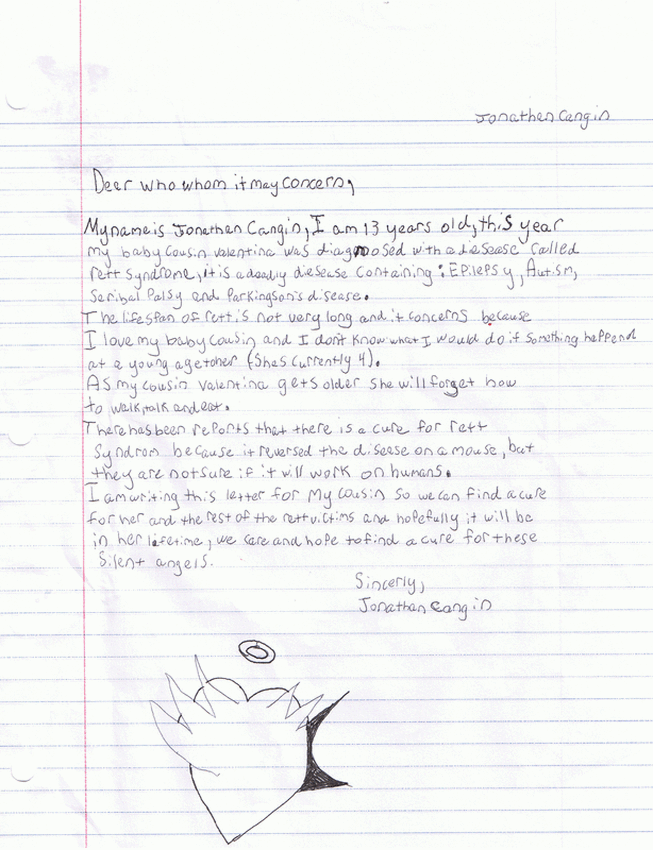 Jonathan Cangin
Deer who whom it may concern,
My name is Jonathan Cangin, I am 13 years old, this year
my baby cousin valentina was diagnosed with a diesease called
rett syndrome, it is a deadly diesease containing: Epilepsy, Autism,
Seribal Palsy and Parkingson's disease.
The lifespan of rett is not very long and it concerns because
I love my baby cousin and I don't know what I would do if something heppend
at a young age to her (Shes currently 4).
As my cousin valentina gets older she will forget how
to walk, talk and eat.
There has been reports that there is a cure for rett
Syndrom because it reversed the disease on a mouse, but
they are not sure if it will work on humans.
I am writing this letter for my cousin so we can find a cure
for her and the rest of the rett victims and hopefully it will be
in her lifetime, we care and hope to find a cure for these
Silent angels.
Sincerly,
Jonathan Cangin